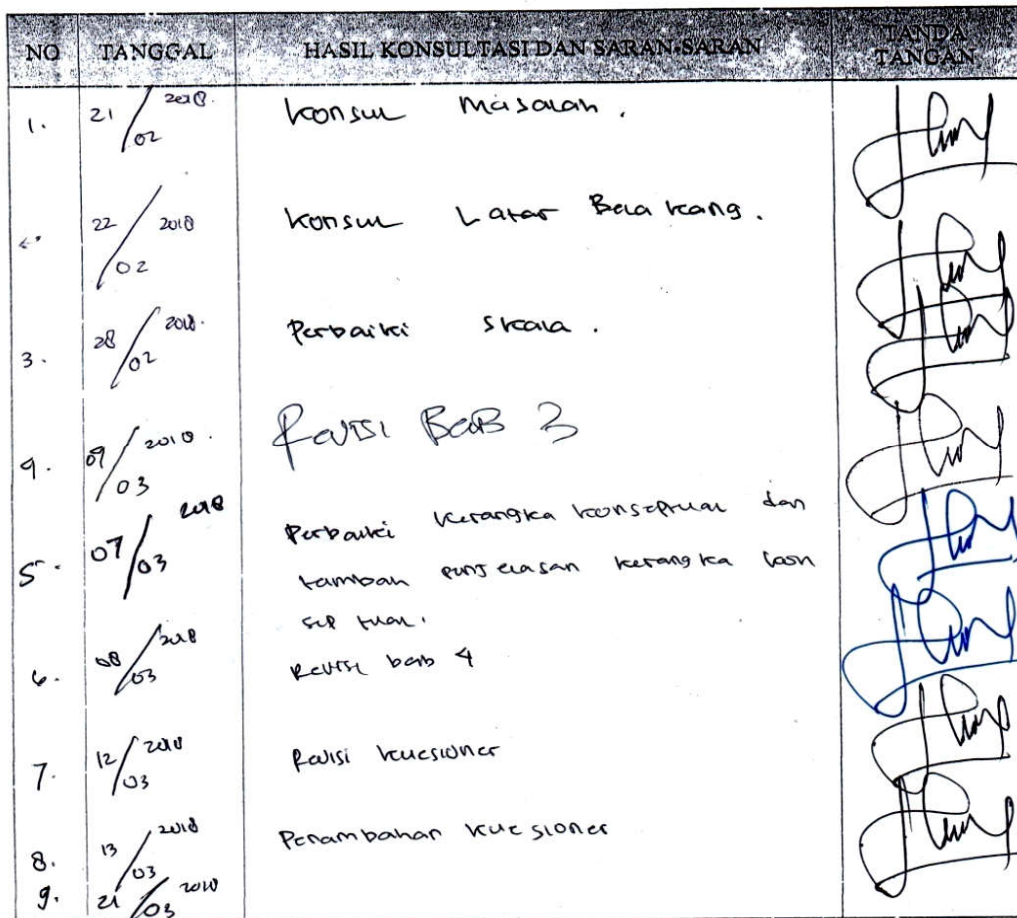 NO TANGGAL HASIL KONSULTASI DAN SARAN-SARAN TANDA TANGAN
1. 21/02 2018. Konsul Masalah.
22/02 2018 Konsul Latar Belakang.
3. 28/02 2018. Perbaiki Skala.
4. 03 2018. Revisi BAB 3
5. 07/03 2018 Perbaiki Kerangka konseptual dan
tambah penjelasan kerangka kon
sep tual.
6. 08/03 2018 Revisi bab 4
7. 12/03 2018 Revisi kuesioner
8. 13/03 2018 Penambahan kuesioner
9. 21/03 2018